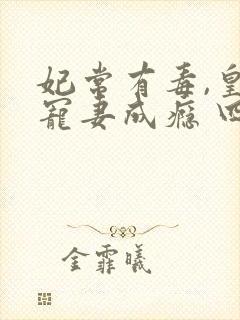 妃常有毒,皇
宠妻成瘾
金霏曦